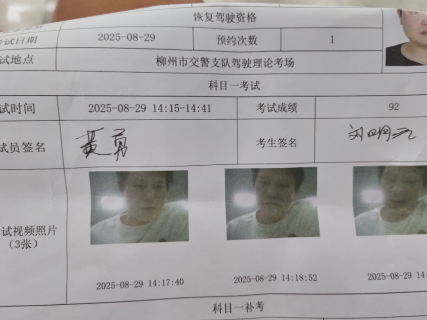 恢复驾驶资格
考试日期 2025-08-29 预约次数 1
试地点 柳州市交警支队驾驶理论考场
科目一考试
试时间 2025-08-29 14:15-14:41 考试成绩 92
试员签名 黄勇 考生签名
试视频照片
(3张)
2025-08-29 14:17:40 2025-08-29 14:18:52 2025-08-29 14
科目一补考